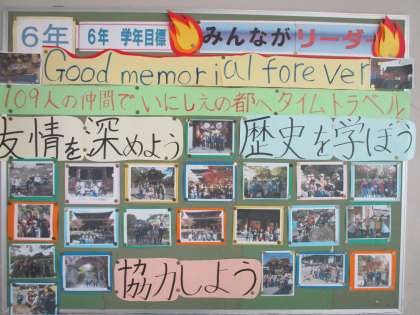 6年
6年 学年目標
みんながリーダー
Good memorial forever
109人の仲間で、いにしえの都へタイムトラベル
友情を深めよう
歴史を学ぼう
協力しよう